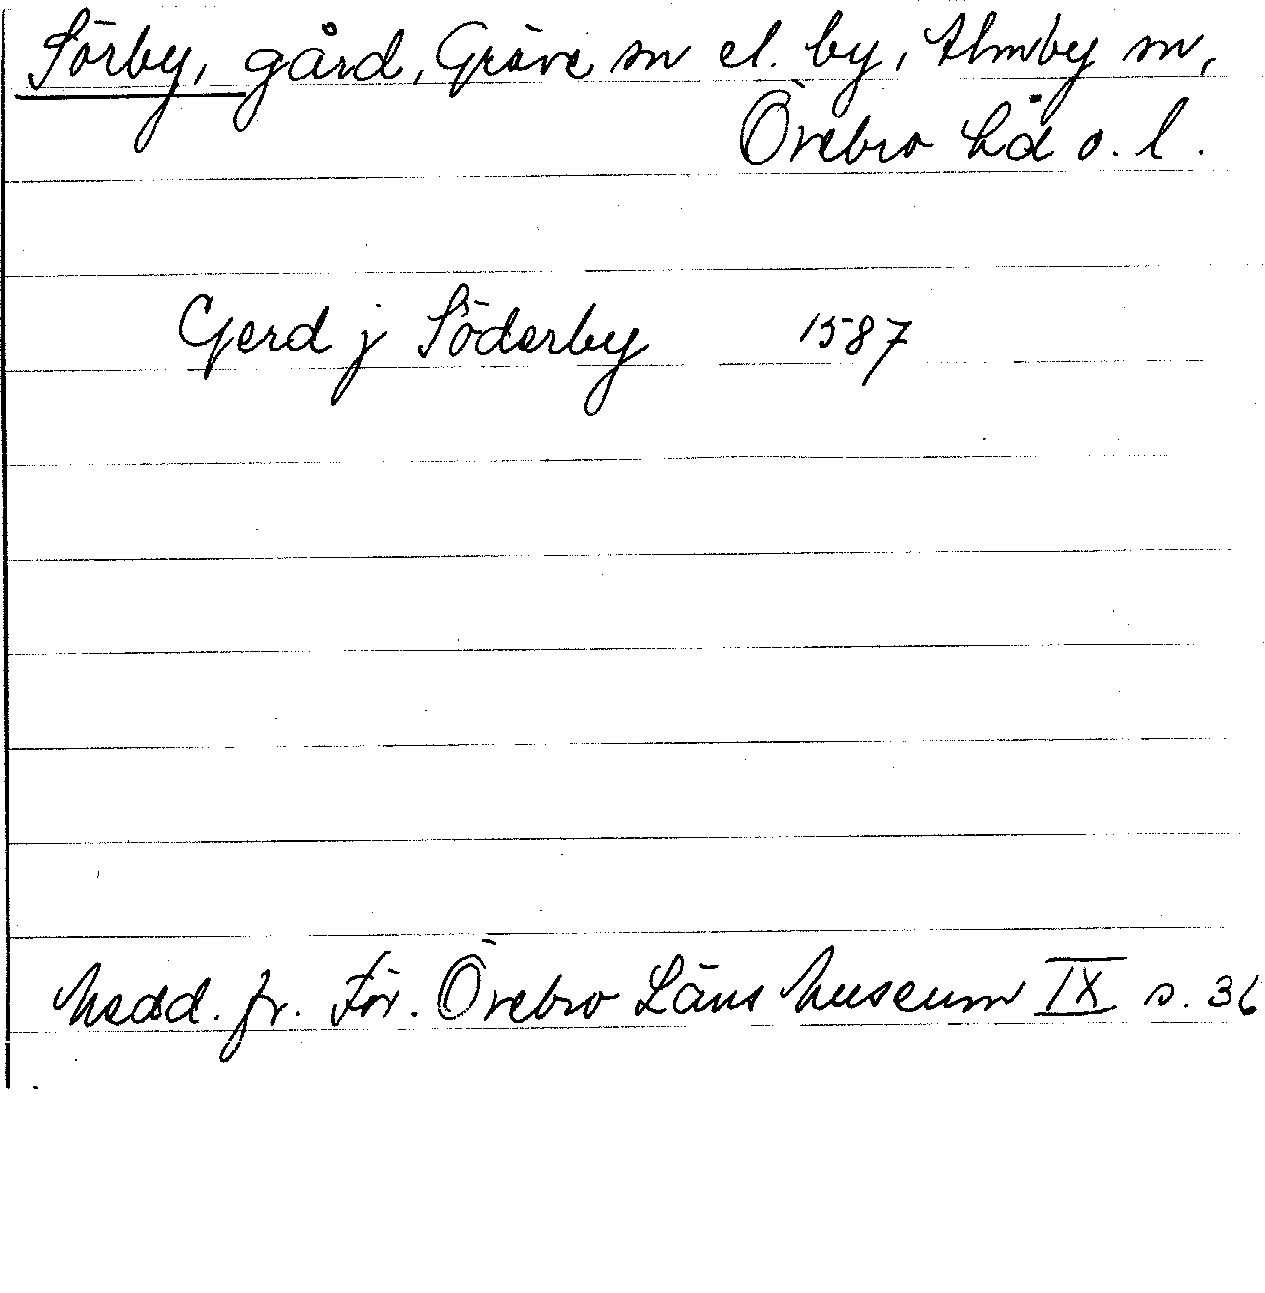 Sörby, gård, Gräve sn el. by, Almby sn,
Örebro hd o. l.
Gerd j Söderby 1587
Medd. fr. För. Örebro Läns Museum IX s. 36